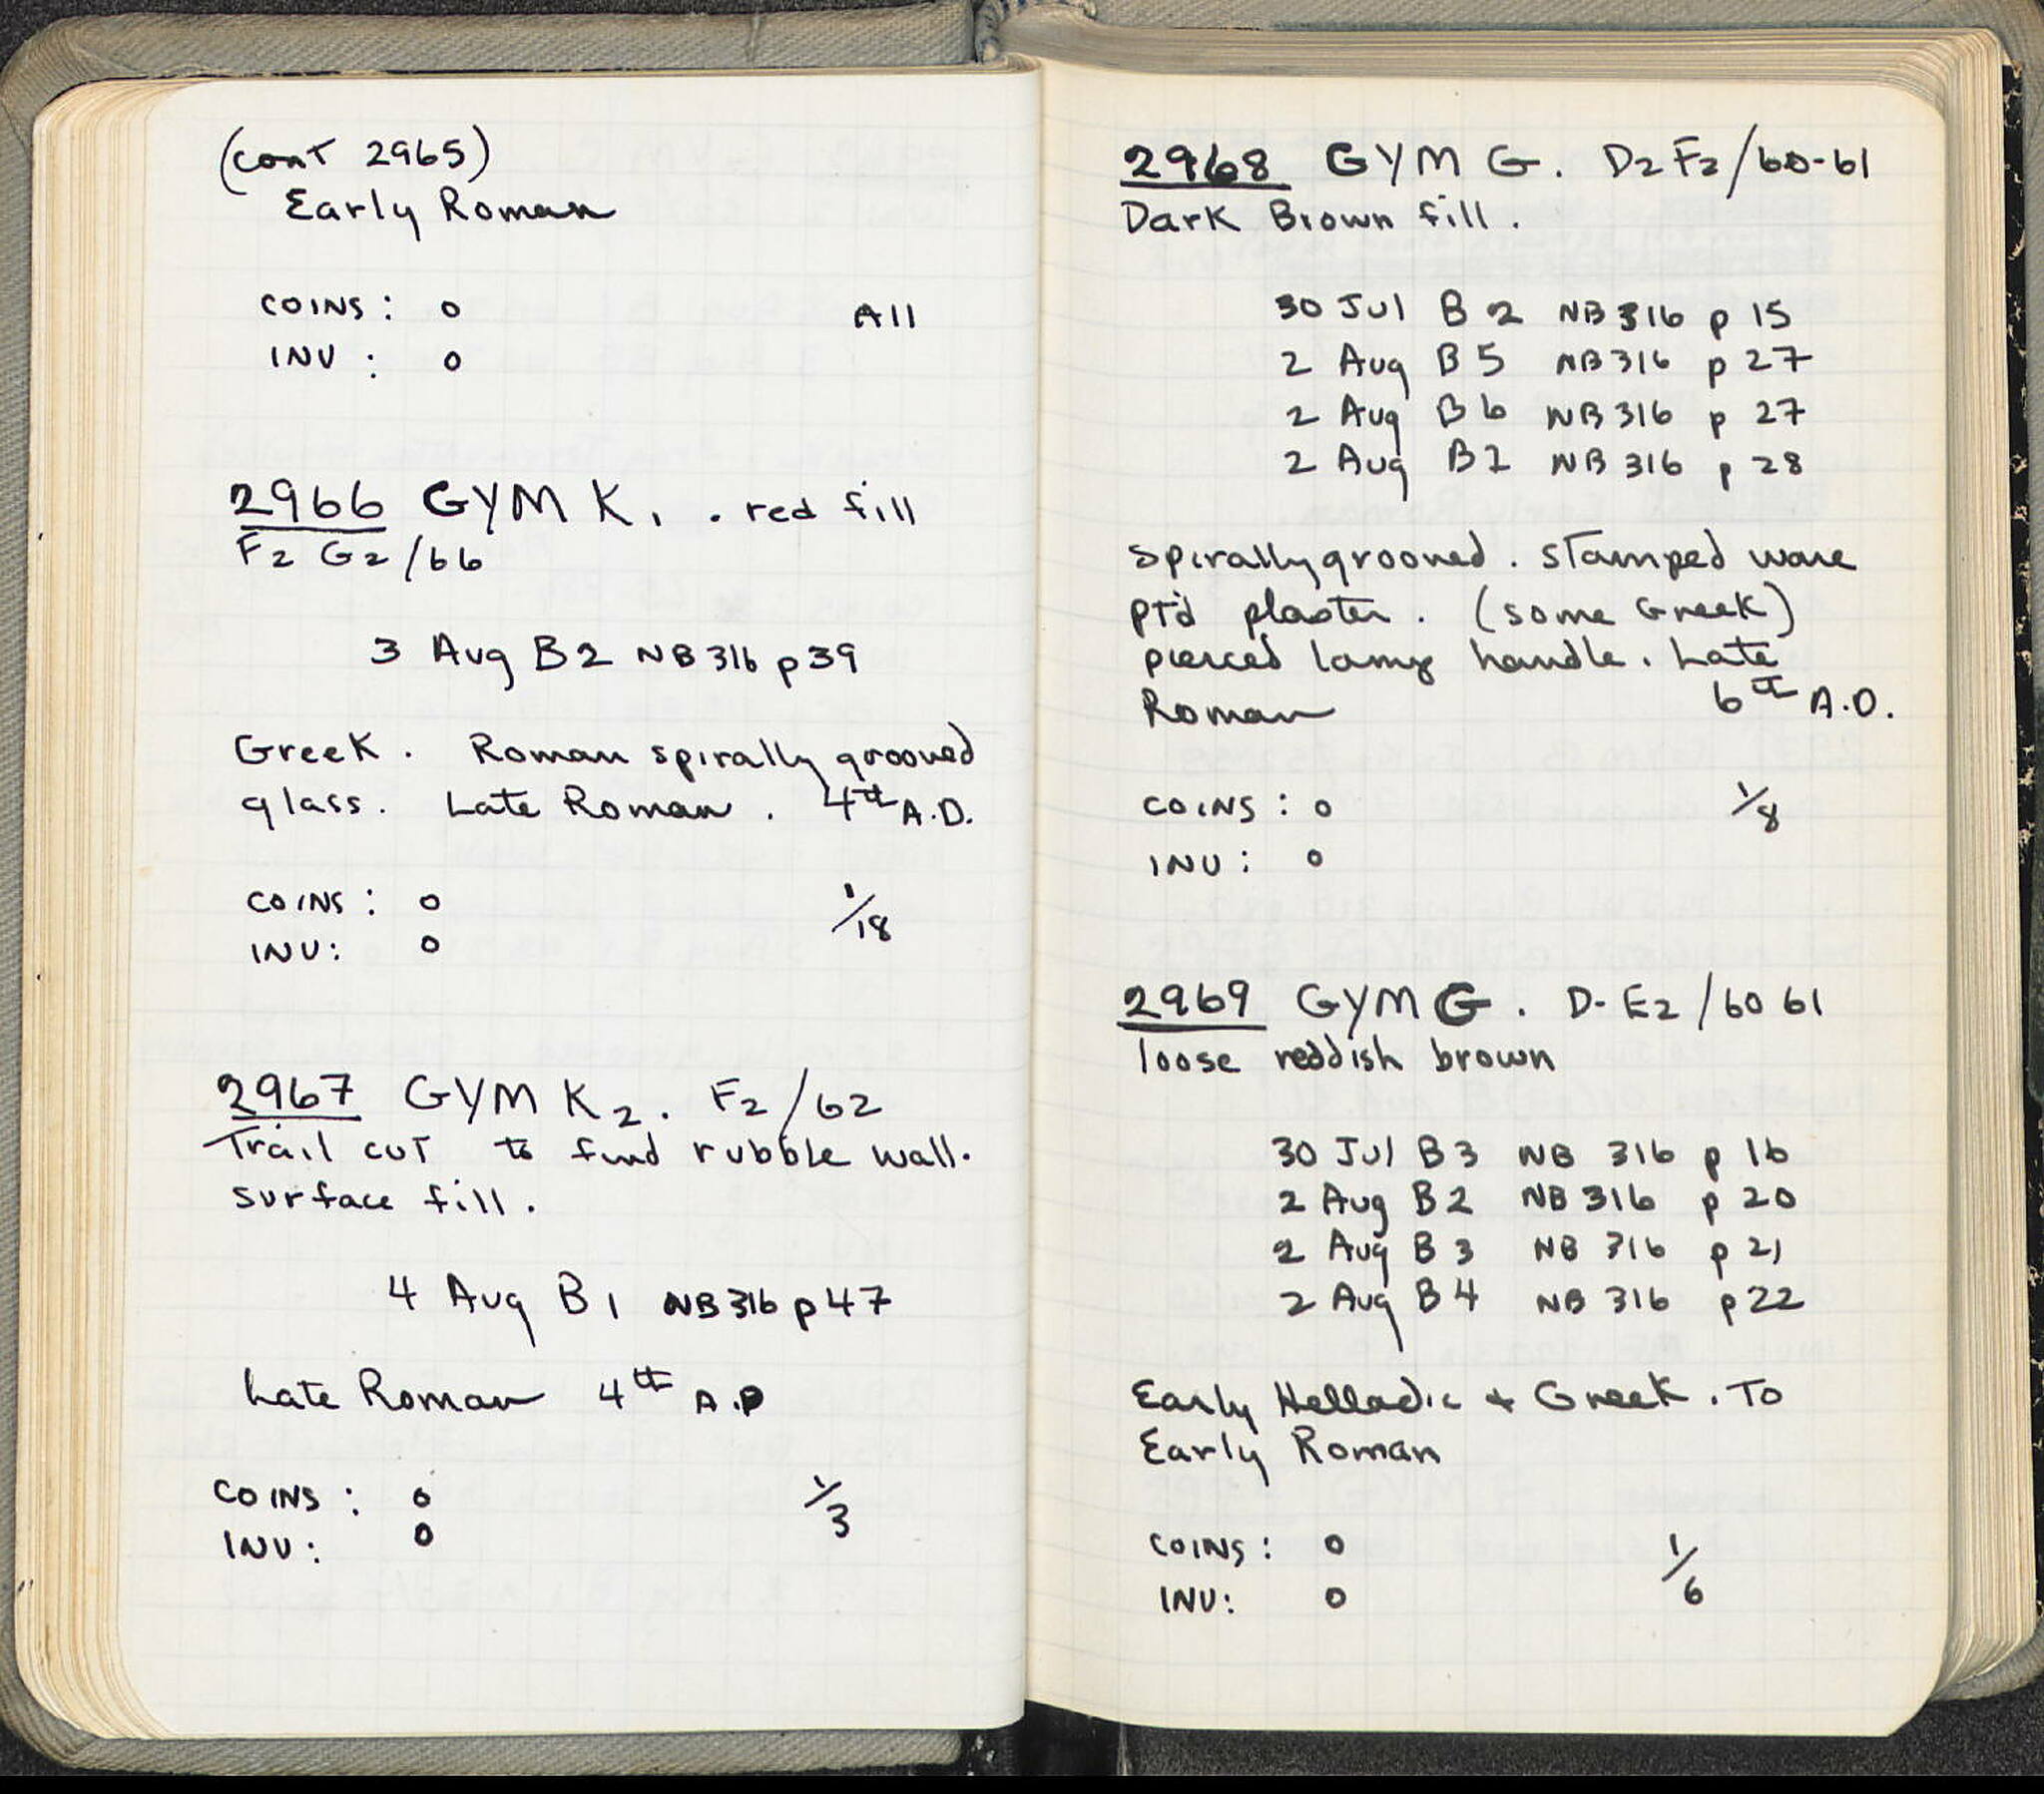 (cont 2965)
Early Roman
COINS: 0 All
INV: 0
2966 GYM K1. red fill
F2 G2/66
3 Aug B2 NB 316 p 39
Greek. Roman spirally grooved
glass. Late Roman. 4th A.D.
COINS: 0 1/18
INV: 0
2967 GYM K2. F2/62
Trail cut to find rubble wall.
surface fill.
4 Aug B1 NB 316 p 47
Late Roman 4th A.D
COINS: 0 1/3
INV: 0
2968 GYM G. D2 F2/60-61
Dark Brown fill.
30 Jul B2 NB 316 p 15
2 Aug B5 NB 316 p 27
2 Aug B6 NB 316 p 27
2 Aug B2 NB 316 p 28
spirally grooved. stamped ware
pt'd plaster. (some Greek)
pierced lamp handle. Late
Roman 6th A.D.
COINS: 0 1/8
INV: 0
2969 GYM G. D-E2/60 61
loose reddish brown
30 Jul B3 NB 316 p 16
2 Aug B2 NB 316 p 20
2 Aug B3 NB 316 p 21
2 Aug B4 NB 316 p 22
Early Helladic + Greek. To
Early Roman
COINS: 0 1/6
INV: 0